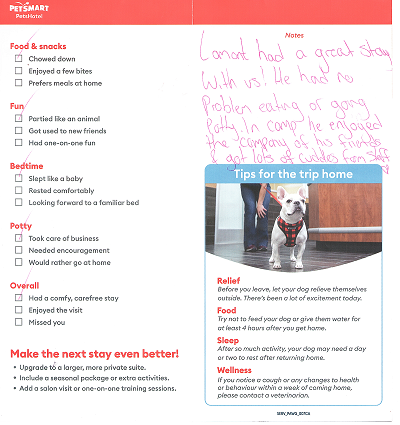 PETSMART
PetsHotel
Food & snacks
Chowed down
Enjoyed a few bites
Prefers meals at home
Fun
Partied like an animal
Got used to new friends
Had one-on-one fun
Bedtime
Slept like a baby
Rested comfortably
Looking forward to a familiar bed
Potty
Took care of business
Needed encouragement
Would rather go at home
Overall
Had a comfy, carefree stay
Enjoyed the visit
Missed you
Make the next stay even better!
• Upgrade to a larger, more private suite.
• Include a seasonal package or extra activities.
• Add a salon visit or one-on-one training sessions.
Notes
Lamont had a great stay
With us! He had no
Problem eating or going
Potty. In camp he enjoyed
the company of his friends
& got lots of cuddles from staff
Tips for the trip home
Relief
Before you leave, let your dog relieve themselves
outside. There's been a lot of excitement today.
Food
Try not to feed your dog or give them water for
at least 4 hours after you get home.
Sleep
After so much activity, your dog may need a day
or two to rest after returning home.
Wellness
If you notice a cough or any changes to health
or behaviour within a week of coming home,
please contact a veterinarian.